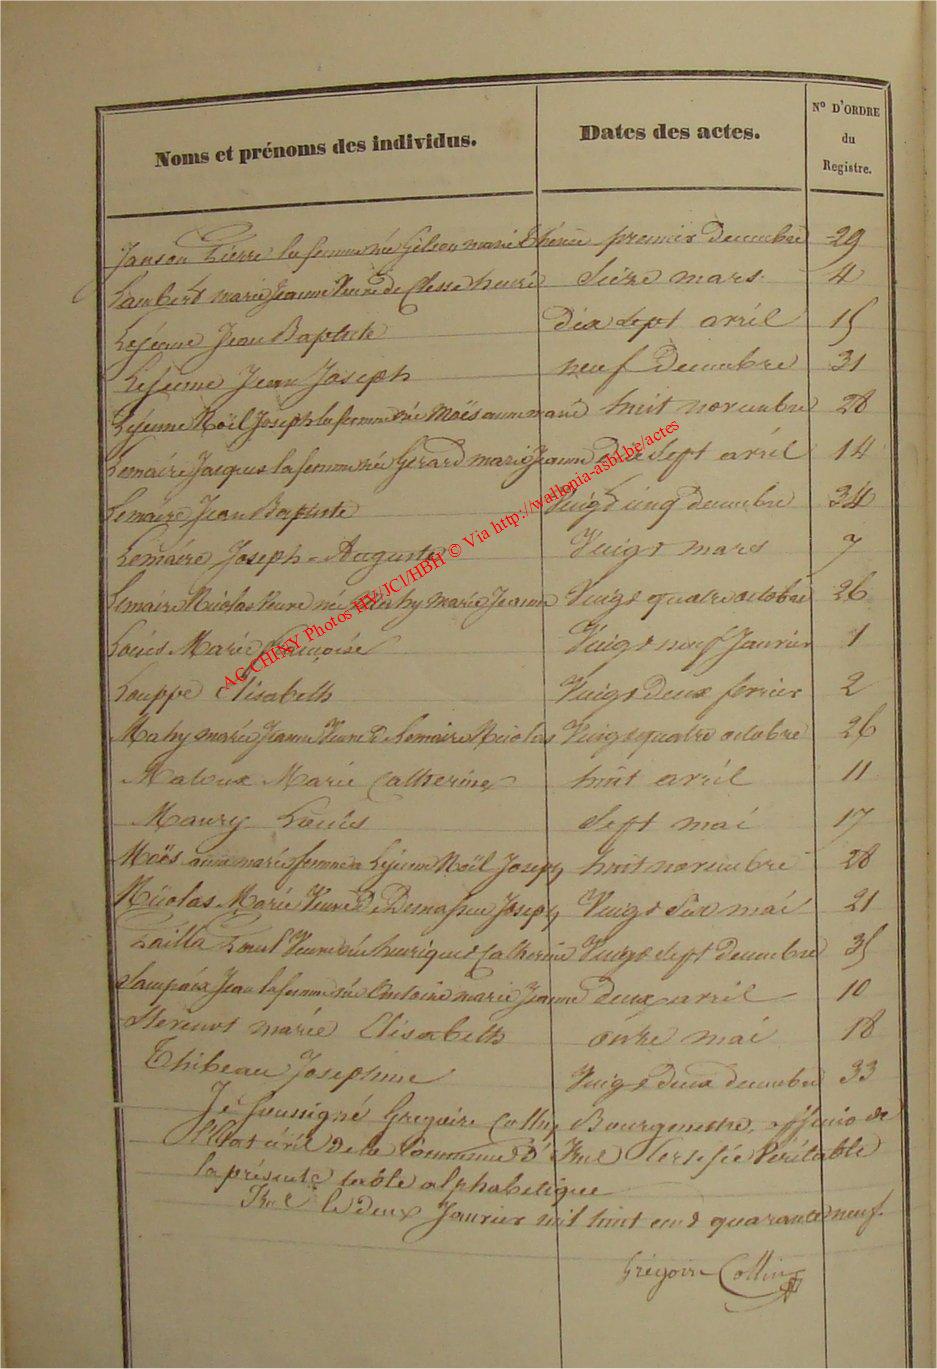 Noms et prénoms des individus. Dates des actes. N° D'ORDRE du Registre.
Janson Pierre la femme née Gilson marie Thérèse premier Decembre 29
Lambert marie Jeanne Veuve de Clesse henri Seize mars 4
Lejeune Jean Baptiste dix sept avril 15
Lejeune Jean Joseph neuf Decembre 31
Lejeune Noël Joseph la femme née Moës anne marie huit novembre 28
Lemaire Jacques la femme née Gerard marie Jeanne dix sept avril 14
Lemaire Jean Baptiste Vingt cinq decembre 34
Lemaire Joseph-Auguste Vingt mars 7
Lemaire Nicolas Veuve née Mahy marie Jeanne Vingt quatre octobre 26
Louis Marie Françoise Vingt neuf Janvier 1
Louppe Elisabeth Vingt deux fevrier 2
Mahy marie Jeanne Veuve de Lemaire Nicolas Vingt quatre octobre 26
Maloux Marie Catherine huit avril 11
Maury Louis Sept mai 17
Moës anne marie femme a Lejeune Noël Joseph huit novembre 28
Nicolas Marie Veuve de Joseph Vingt Six mai 21
Veuve née henriquet Catherine Vingt sept decembre 35
Jean la femme née Antoine marie Jeanne deux avril 10
marie Elisabeth onze mai 18
Thibeau Josephine Vingt deux decembre 33
Je Soussigné Gregoire Collin Bourgmestre, officier de
l'Etat civil de la Commune d'Izel Certifie Véritable
la présente table alphabetique
Izel le deux Janvier mil huit cent quarante neuf.
Grégoire Collin
AC CHINY Photos HV/JCl/HBH © Via http://wallonia-asbl.be/actes